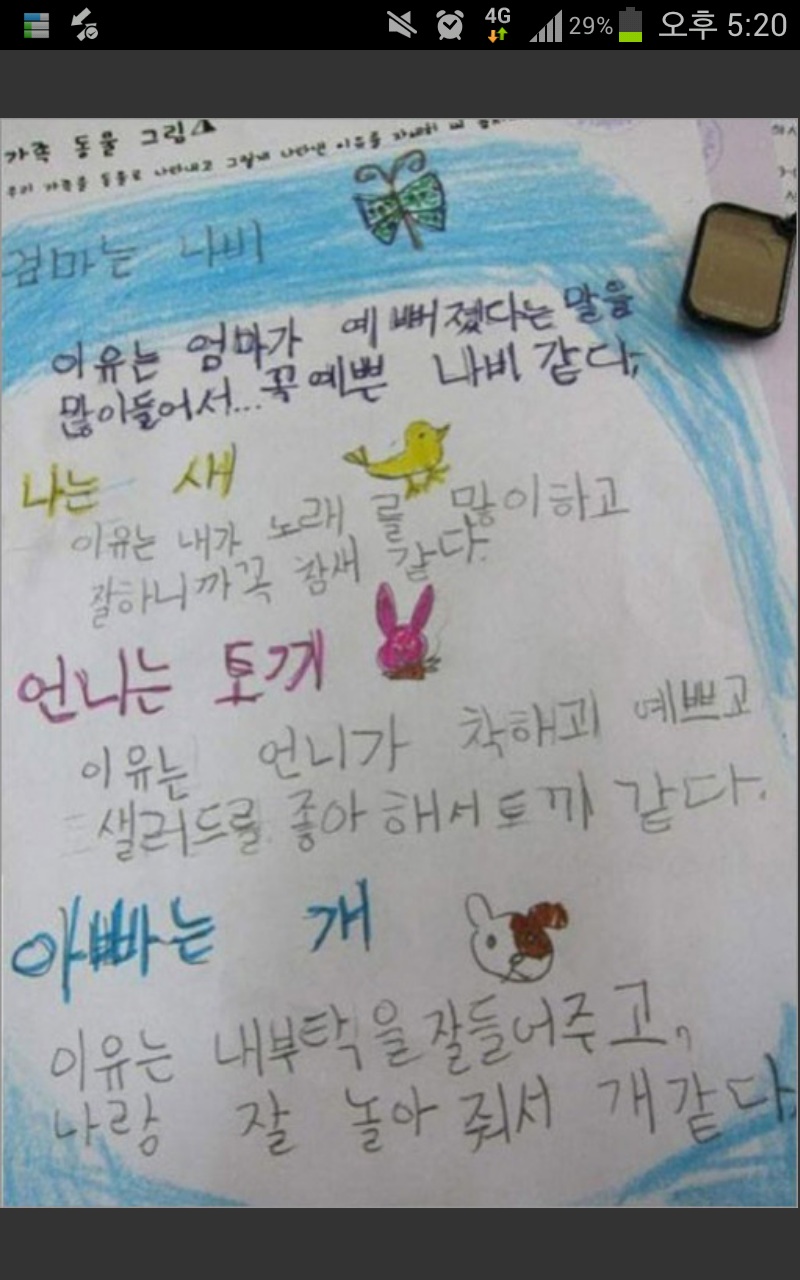 29% 오후 5:20
4G
가족 동물 그림
우리 가족을 동물로 나타내고 그렇게 나타낸 이유를 자세히
엄마는 나비
이유는 엄마가 예뻐졌다는 말을
많이들어서...꼭예쁜 나비 같다,
나는 새
이유는 내가 노래 를 많이하고
잘하니까꼭 참새 같다.
언니는 토끼
이유는 언니가 착해괴 예쁘고
샐러드를 좋아해서토끼 같다.
아빠는 개
이유는 내부탁을잘들어주고,
나랑 잘 놀아 줘서 개같다.